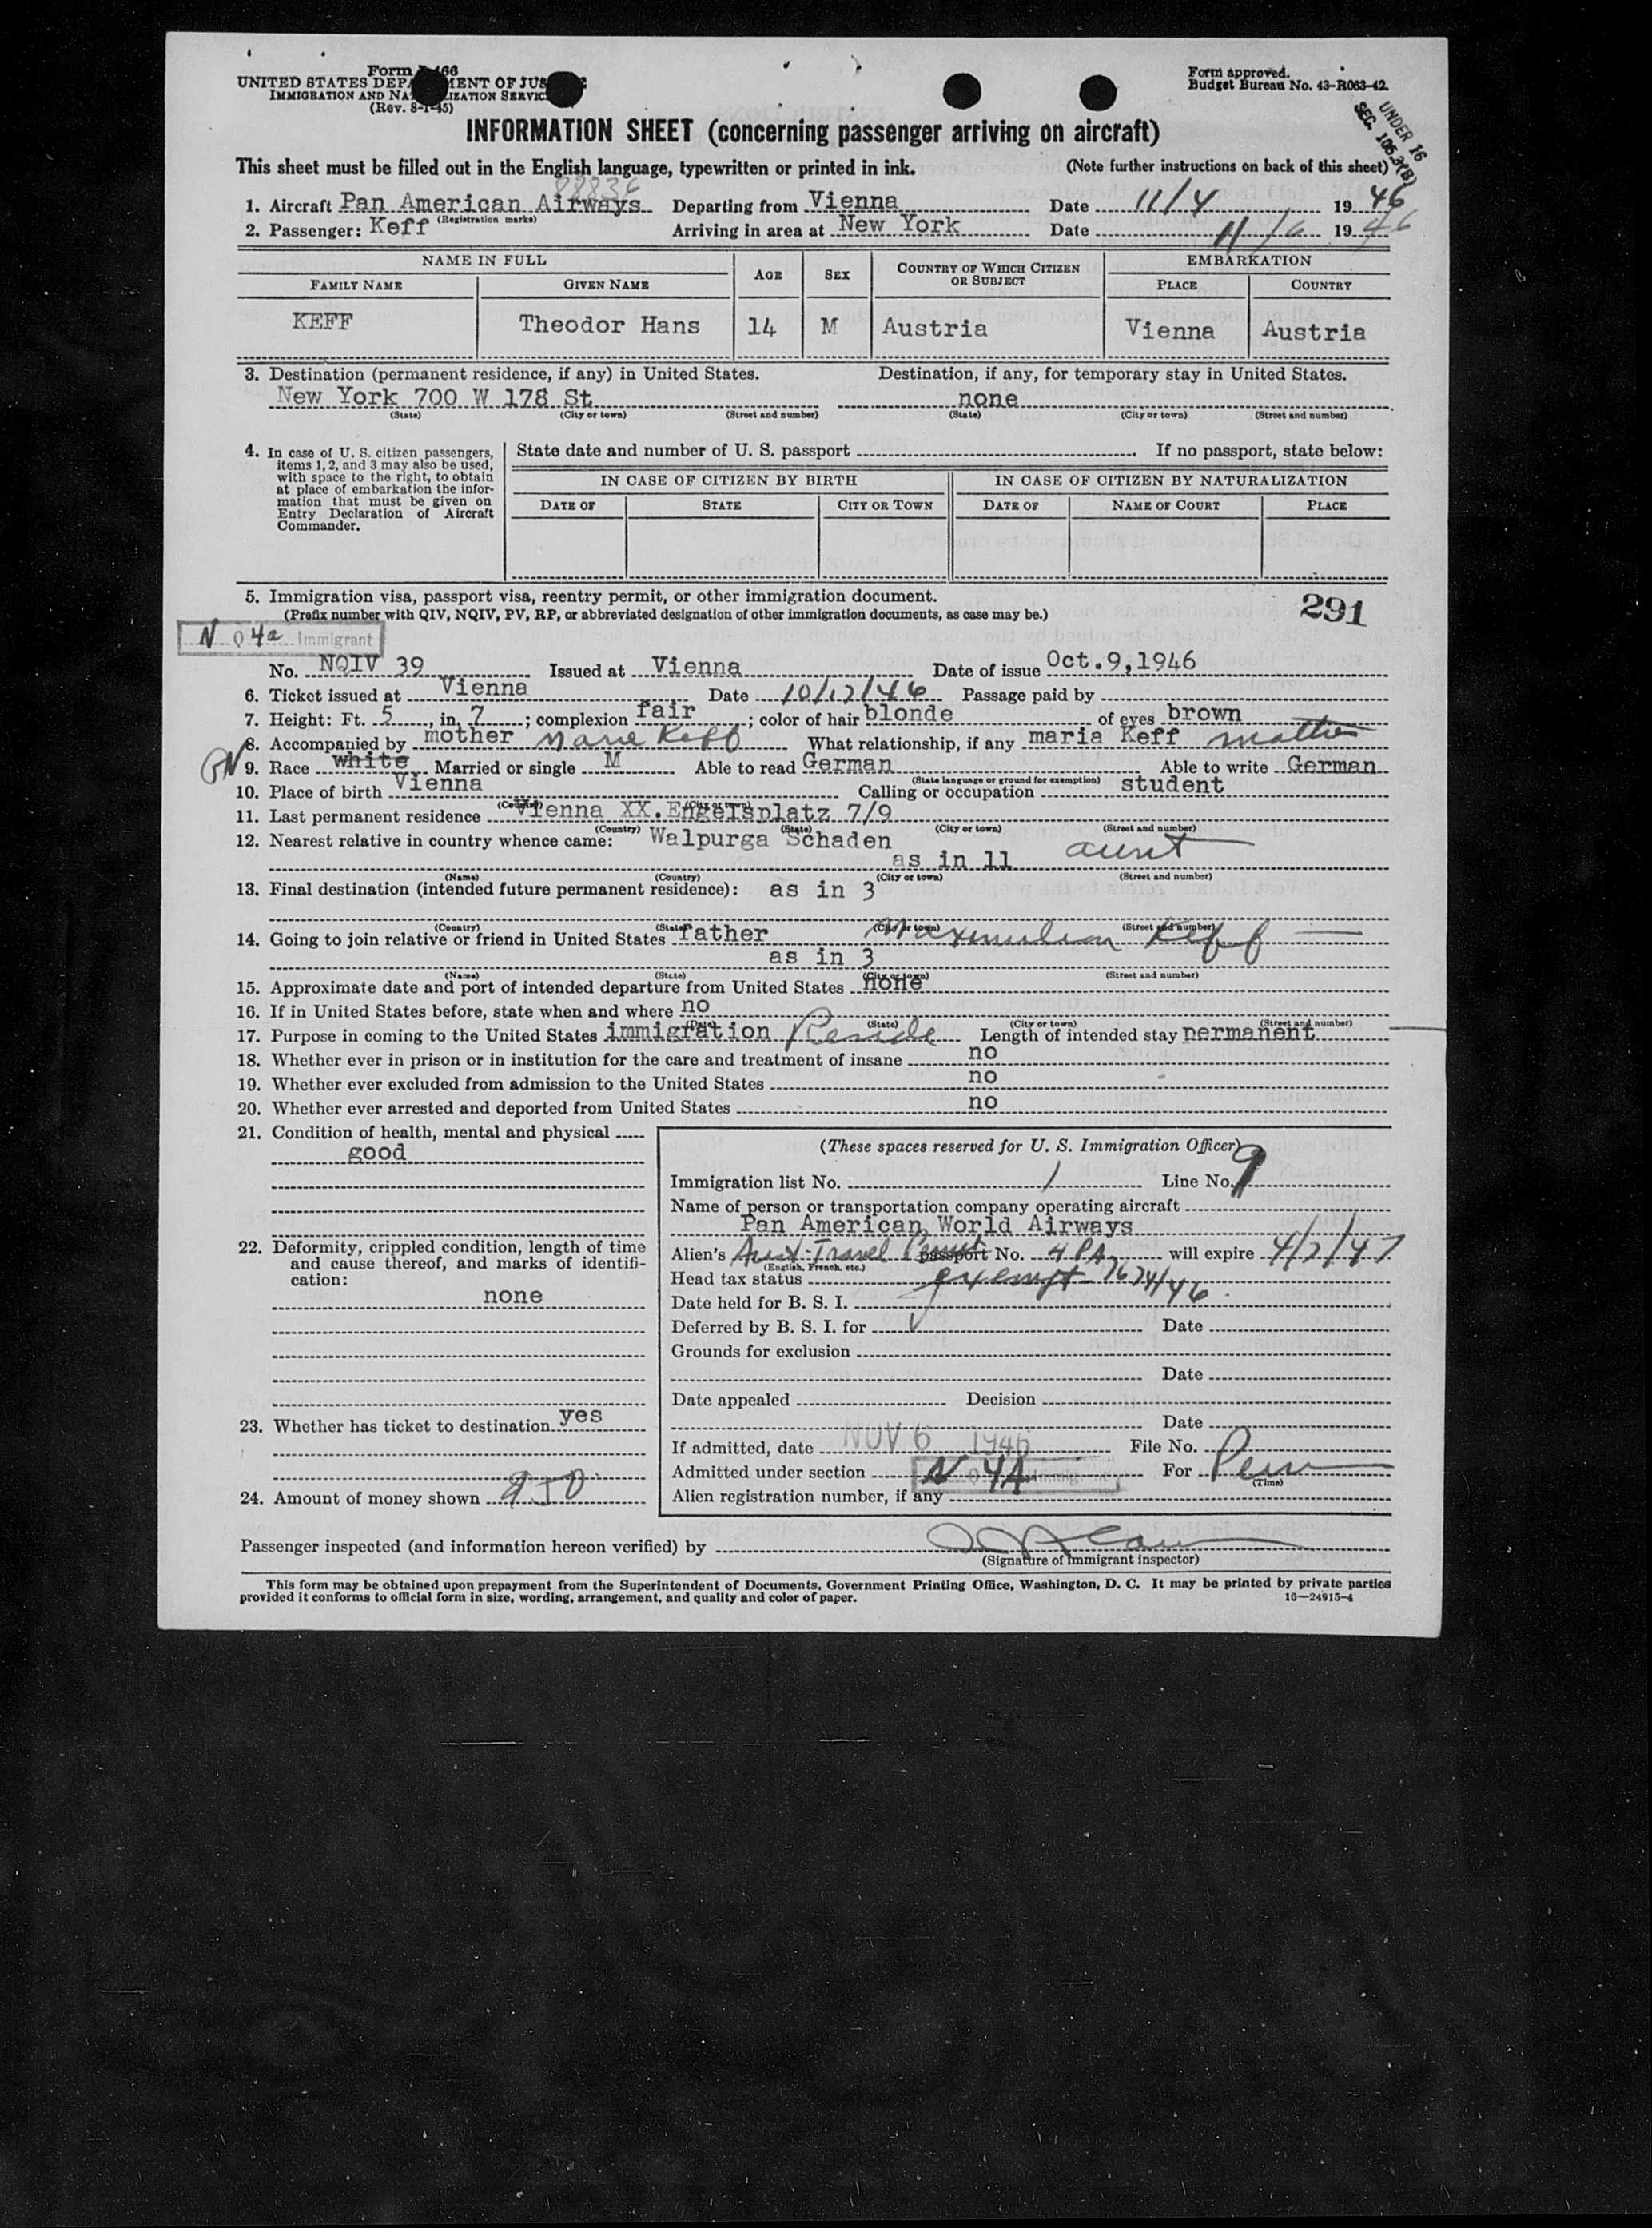 Form I-466
UNITED STATES DEPARTMENT OF JUSTICE
IMMIGRATION AND NATURALIZATION SERVICE
(Rev. 8-1-45)
Form approved.
Budget Bureau No. 43-R063-42.
UNDER 16
SEC. 105.3(B)
INFORMATION SHEET (concerning passenger arriving on aircraft)
This sheet must be filled out in the English language, typewritten or printed in ink. (Note further instructions on back of this sheet)
88836
1. Aircraft Pan American Airways Departing from Vienna Date 11/4 1946
(Registration marks)
2. Passenger: Keff Arriving in area at New York Date 11/6 1946
NAME IN FULL AGE SEX COUNTRY OF WHICH CITIZEN OR SUBJECT EMBARKATION
FAMILY NAME GIVEN NAME PLACE COUNTRY
KEFF Theodor Hans 14 M Austria Vienna Austria
3. Destination (permanent residence, if any) in United States. Destination, if any, for temporary stay in United States.
New York 700 W 178 St none
(State) (City or town) (Street and number) (State) (City or town) (Street and number)
4. In case of U. S. citizen passengers, items 1, 2, and 3 may also be used, with space to the right, to obtain at place of embarkation the information that must be given on Entry Declaration of Aircraft Commander.
State date and number of U. S. passport If no passport, state below:
IN CASE OF CITIZEN BY BIRTH IN CASE OF CITIZEN BY NATURALIZATION
DATE OF STATE CITY OR TOWN DATE OF NAME OF COURT PLACE
5. Immigration visa, passport visa, reentry permit, or other immigration document.
(Prefix number with QIV, NQIV, PV, RP, or abbreviated designation of other immigration documents, as case may be.)
291
N Q 4a Immigrant
No. NQIV 39 Issued at Vienna Date of issue Oct.9,1946
6. Ticket issued at Vienna Date 10/17/46 Passage paid by
7. Height: Ft. 5, in. 7; complexion fair; color of hair blonde of eyes brown
8. Accompanied by mother Marie Keff What relationship, if any maria Keff mother
9. Race white Married or single M Able to read German Able to write German
(State language or ground for exemption)
10. Place of birth Vienna Calling or occupation student
(Country) (City or town)
11. Last permanent residence Vienna XX.Engelsplatz 7/9
(Country) (State) (City or town) (Street and number)
12. Nearest relative in country whence came: Walpurga Schaden
as in 11 aunt
(Name) (Country) (City or town) (Street and number)
13. Final destination (intended future permanent residence): as in 3
(Country) (State) (City or town) (Street and number)
14. Going to join relative or friend in United States father Maximilian Keff
as in 3
(Name) (State) (City or town) (Street and number)
15. Approximate date and port of intended departure from United States none
16. If in United States before, state when and where no
(Date) (State) (City or town) (Street and number)
17. Purpose in coming to the United States immigration Reside Length of intended stay permanent
18. Whether ever in prison or in institution for the care and treatment of insane no
19. Whether ever excluded from admission to the United States no
20. Whether ever arrested and deported from United States no
21. Condition of health, mental and physical
good
22. Deformity, crippled condition, length of time and cause thereof, and marks of identification:
none
23. Whether has ticket to destination yes
24. Amount of money shown
(These spaces reserved for U. S. Immigration Officer)
Immigration list No. 1 Line No. 9
Name of person or transportation company operating aircraft
Pan American World Airways
Alien's Aust. Travel Permit passport No. 4 PA will expire 4/7/47
(English, French, etc.)
Head tax status exempt
Date held for B. S. I.
Deferred by B. S. I. for Date
Grounds for exclusion
Date
Date appealed Decision
Date
If admitted, date NOV 6 1946 File No.
Admitted under section N Q 4A Immigrant For Perm
(Time)
Alien registration number, if any
Passenger inspected (and information hereon verified) by
(Signature of immigrant inspector)
This form may be obtained upon prepayment from the Superintendent of Documents, Government Printing Office, Washington, D. C. It may be printed by private parties
provided it conforms to official form in size, wording, arrangement, and quality and color of paper. 16—24915-4